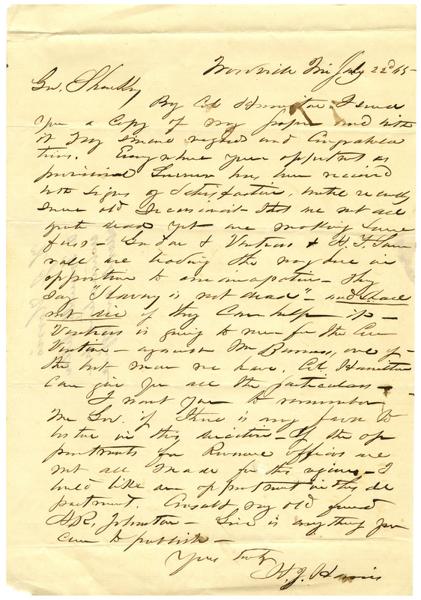 Miss July 22d 65-
Gov. Sharkey
By Col Hamilton I send
you a Copy of my paper and with
it my sincere regards and Congratula
tions. Everywhere your appointment as
provisional Governor has been received
with signs of Satisfaction, with the
some old Secessionists that are not all
quite dead yet are making some
fuss -
are heading the in
opposition to emancipation - They
say "Slavery is not dead" - and shall
not die if they Can help it -
Ventress is going to run for the Con
vention - against Mr Burruss, one of
the best men we have. Col. Hamilton
Can give you all the particulars -
I want you to remember
me Gov. if there is any favor to
bestow in this direction - If the ap
pointments for Revenue Officers are
not all made for this region - I
would like an appointment in this de
partment. Consult my old friend
A.R. Johnston - Send is anything you
care to publish -
Yours truly
H. J. Harris